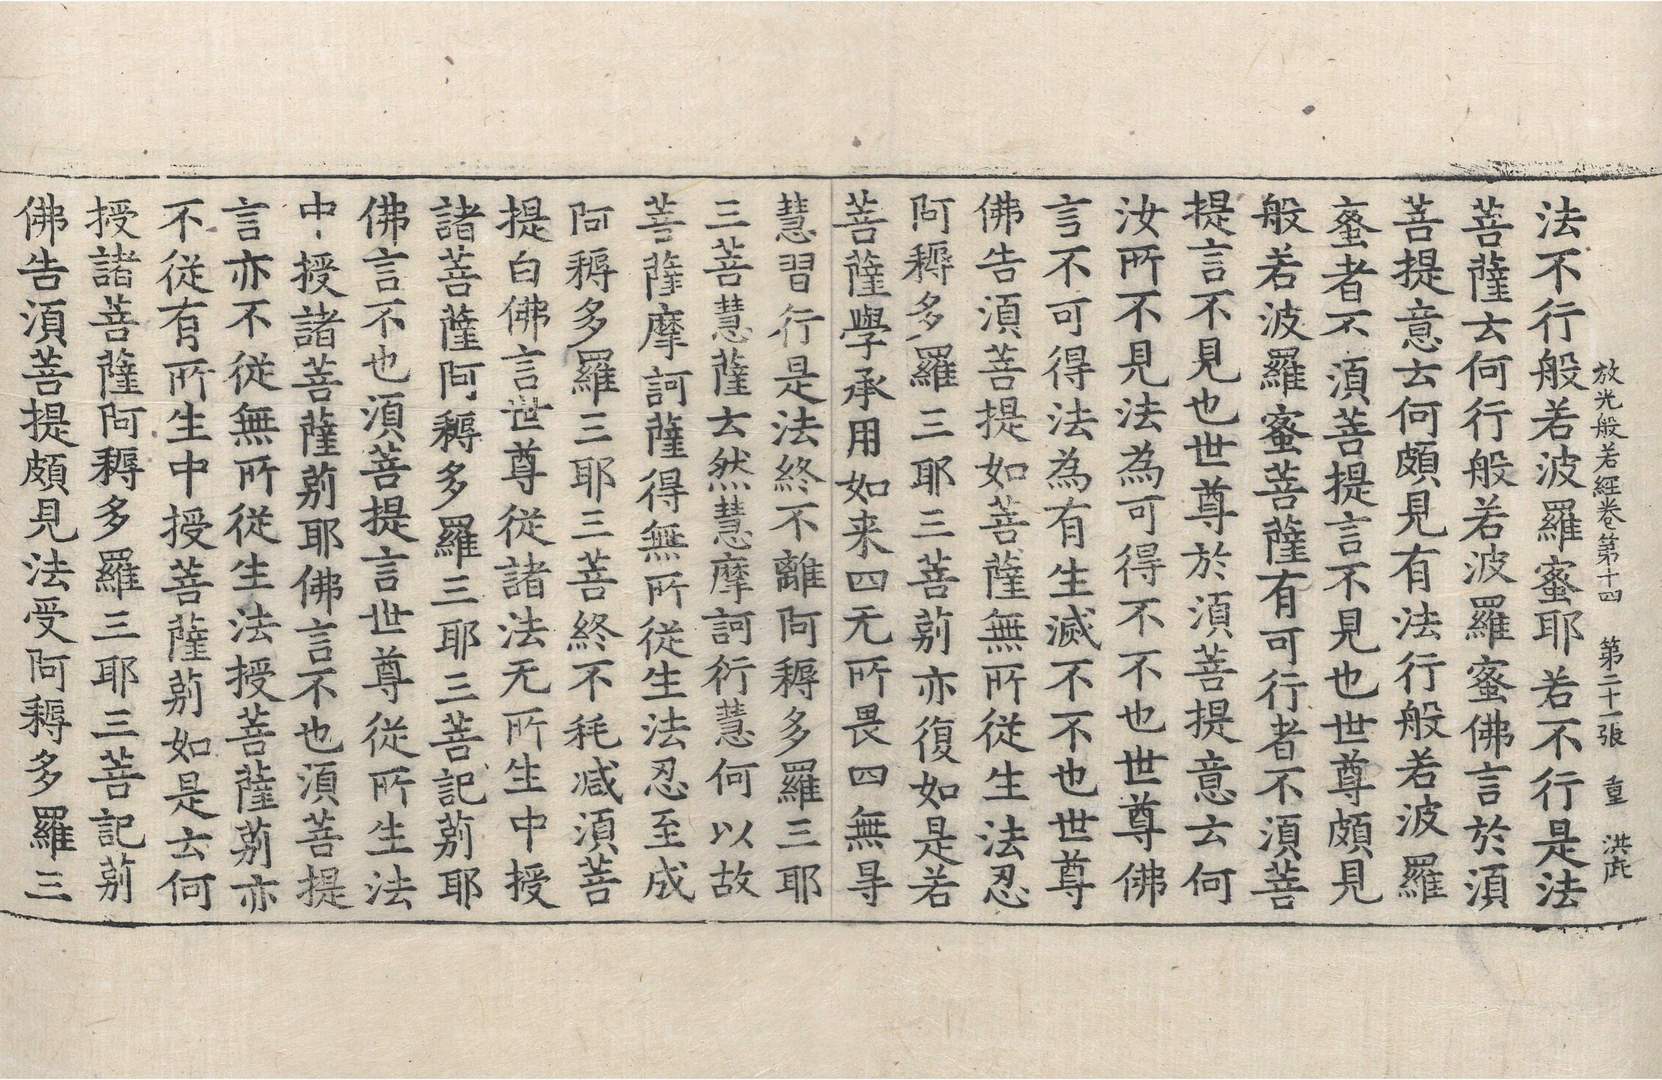 放光般若經卷第十四 第二十一張 重 洪
法不行般若波羅蜜耶若不行是法
菩薩云何行般若波羅蜜佛言於須
菩提意云何頗見有法行般若波羅
蜜者不須菩提言不見也世尊頗見
般若波羅蜜菩薩有可行者不須菩
提言不見也世尊於須菩提意云何
汝所不見法為可得不不也世尊佛
言不可得法為有生滅不不也世尊
佛告須菩提如菩薩無所從生法忍
阿耨多羅三耶三菩莂亦復如是若
菩薩學承用如来四无所畏四無㝵
慧習行是法終不離阿耨多羅三耶
三菩慧薩云然慧摩訶衍慧何以故
菩薩摩訶薩得無所從生法忍至成
阿耨多羅三耶三菩終不耗減須菩
提白佛言世尊從諸法无所生中授
諸菩薩阿耨多羅三耶三菩記莂耶
佛言不也須菩提言世尊從所生法
中授諸菩薩莂耶佛言不也須菩提
言亦不從無所從生法授菩薩莂亦
不從有所生中授菩薩莂如是云何
授諸菩薩阿耨多羅三耶三菩記莂
佛告須菩提頗見法受阿耨多羅三